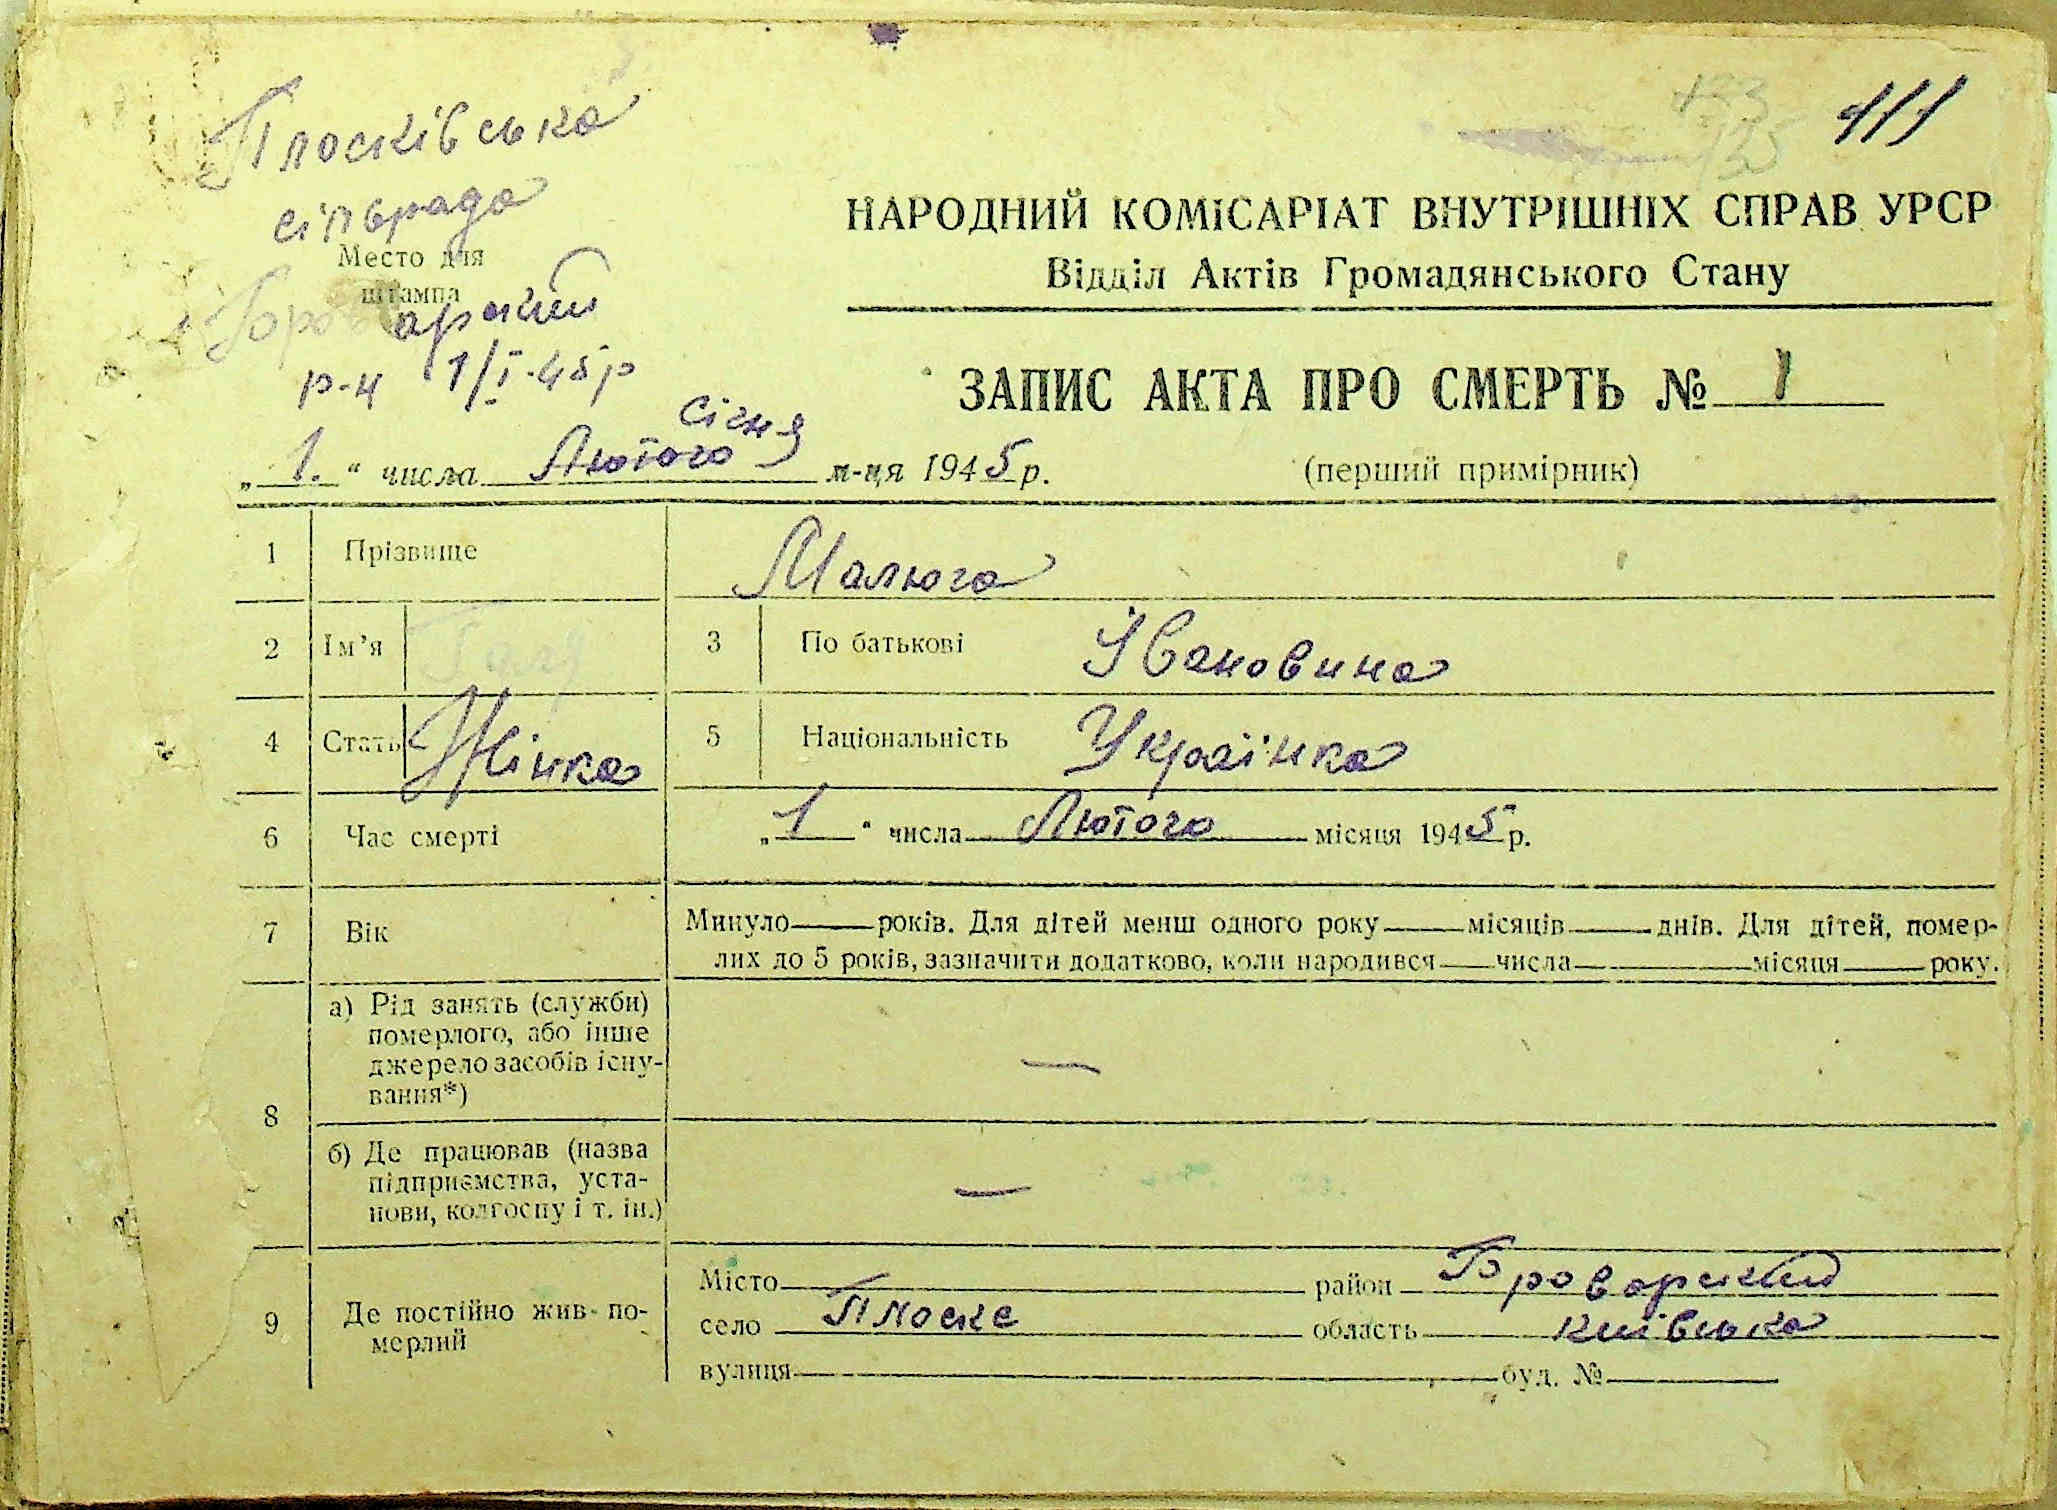 Плосківська
111
сільрада
Место для
штампа
Броварський
р-н 1/I-45р
НАРОДНИЙ КОМІСАРІАТ ВНУТРІШНІХ СПРАВ УРСР
Відділ Актів Громадянського Стану
ЗАПИС АКТА ПРО СМЕРТЬ № 1
(перший примірник)
січня
„1.“ числа Лютого м-ця 1945 р.
1 Прізвище Малюга
2 Ім’я Галя 3 По батькові Івановина
4 Стать Жінка 5 Національність Українка
6 Час смерті „1“ числа Лютого місяця 1945 р.
7 Вік Минуло років. Для дітей менш одного року місяців днів. Для дітей, помер-
лих до 5 років, зазначити додатково, коли народився числа місяця року.
8 а) Рід занять (служби)
померлого, або інше
джерело засобів існу-
вання*) —
б) Де працював (назва
підприємства, уста-
нови, колгоспу і т. ін.) —
9 Де постійно жив по-
мерлий
Місто район Броварський
село Плоске область київська
вулиця буд. №